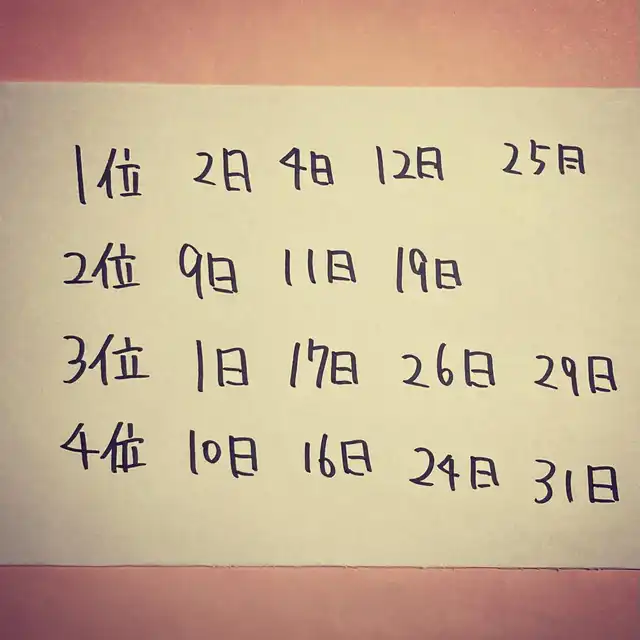 1位 2日 4日 12日 25日
2位 9日 11日 19日
3位 1日 17日 26日 29日
4位 10日 16日 24日 31日